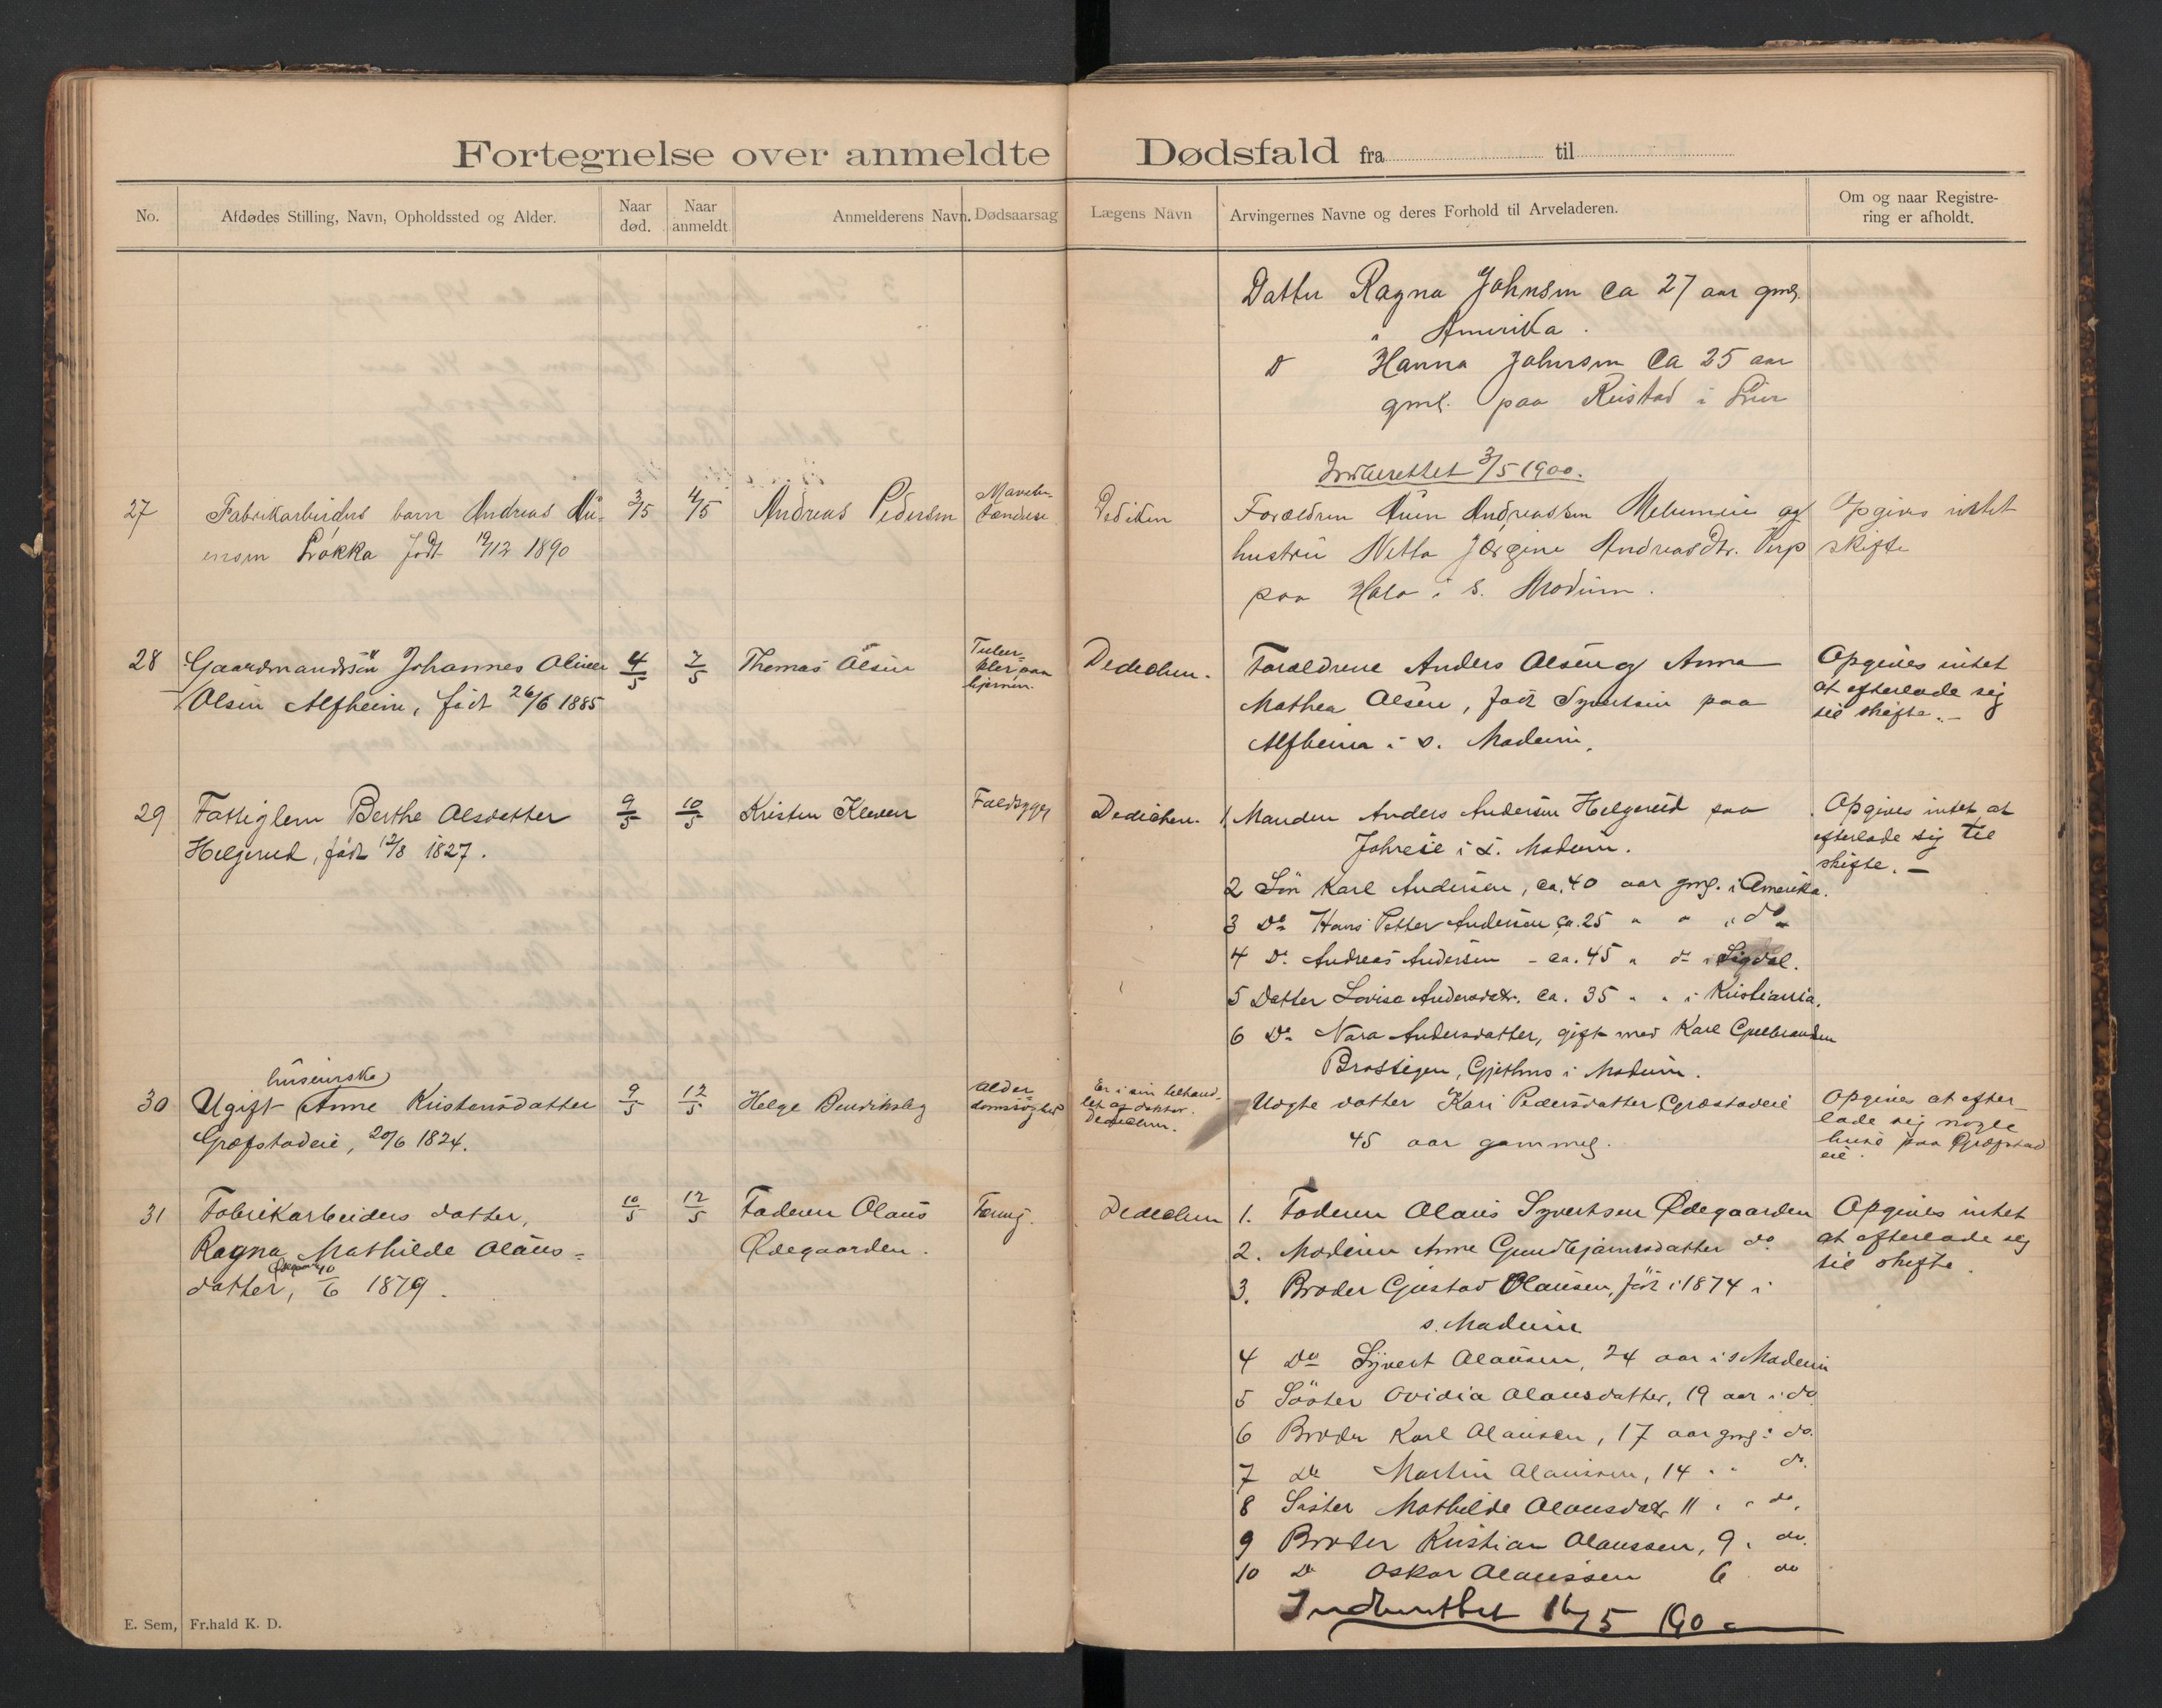 Fortegnelse over anmeldte Dødsfald fra til
No.
Afdødes Stilling, Navn, Opholdssted og Alder.
Naar død.
Naar anmeldt
Anmelderens Navn.
Dødsaarsag
Lægens Navn
Arvingernes Navne og deres Forhold til Arveladeren.
Om og naar Registre-
ring er afholdt.
Datter Ragna Johnsen ca 27 aar gml.
" Amerika.
D Hanna Johnsen ca 25 aar
gml. paa Rustad i Lier
Indberettet 3/5 1900.
27
Fabrikarbeiders barn Andreas
Løkka født 19/12 1890
3/5
4/5
Andreas Pedersen
Dediken
Forældren Andreassen og
hustru Netta Jørgine Andreasdtr.
paa i S. Modum.
Opgives intet
skifte
28
Gaardmandssøn Johannes Oliver
Olsen Alfheim, født 26/6 1885
4/5
7/5
Thomas Olsen
Tuber-
kler paa
hjernen.
Dedichen.
Forældrene Anders Olsen og Anna
Mathea Olsen, født Syvertsen paa
Alfheim i S. Modum.
Opgives intet
at efterlade sig
til skifte. -
29
Fattiglem Berthe Olsdatter
Helgerud, født 12/8 1827.
9/5
10/5
Kristen Kleven
Faldsyge
Dedichen.
1. Manden Anders Andersen Helgerud paa
i S. Modum.
2 Søn Karl Andersen, ca. 40 aar gml. i Amerika.
3 Do Hans Petter Andersen ca. 25 " " " do
4 Do Andreas Andersen - ca. 45 " do i Sigdal.
5 Datter Lovise Andersdatr. ca. 35 " " i Kristiania.
6 Do Nara Andersdatter, gift med Karl Gulbrandsen
Brostigen, Gjethus i Modum.
Opgives intet at
efterlade sig til
skifte. -
30
huseierske
Ugift Anne Kristensdatter
Græfstadeie, 20/6 1824.
9/5
12/5
Helge Bendiksby
Alder
domssvaghed
Er i sin tid behand-
let af doktor
Dedichen.
Uægte datter Kari Pedersdatter Græfstadeie
45 aar gammel.
Opgives at efter-
lade sig nogle
huse paa Græfstad
eie.
31
Fabrikarbeiders datter,
Ragna Mathilde Olaus-
Ødegaarden
datter, 10/6 1879.
10/5
12/5
Faderen Olaus
Ødegaarden.
Tæring.
Dedichen
1. Faderen Olaus Syvertsen Ødegaarden
2. Moderen Anne Gundbjørnsdatter do
3. Broder Gustav Olausen, født i 1874 i
S. Modum
4 Do Syvert Olausen, 24 aar i S. Modum
5 Søster Ovidia Olausdatter, 19 aar i do
6 Broder Karl Olausen, 17 aar gml i do.
7 Do Martin Olaussen, 14 " " do.
8 Søster Mathilde Olausdatr. 11 " " do.
9 Broder Kristian Olaussen, 9 " do.
10 D Oskar Olaussen 6 do
Indberettet 16/5 1900
Opgives intet
at efterlade sig
til skifte.
E. Sem, Fr.hald K. D.